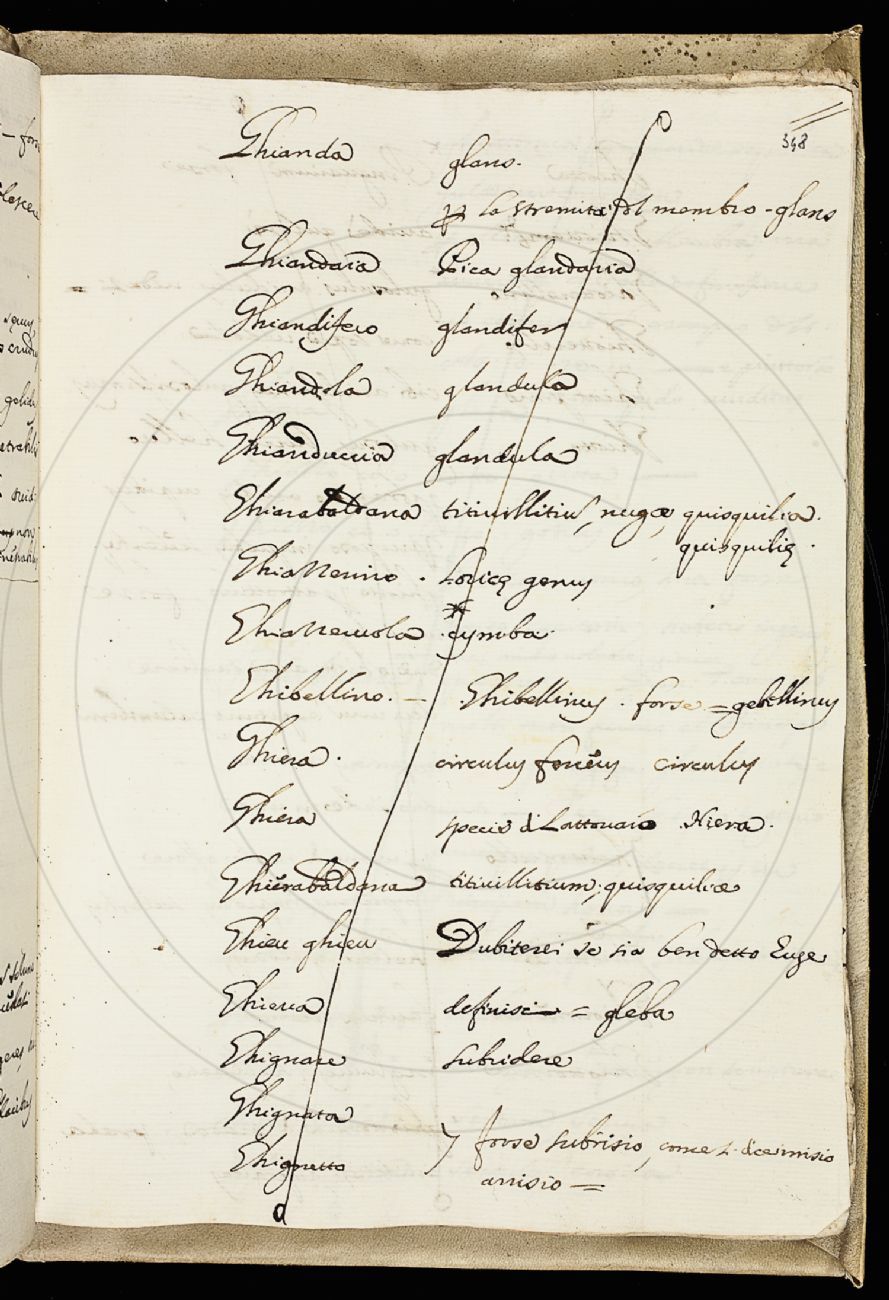 348
Ghianda glans.
p la stremità del membro - glans
Ghiandaia Pica glandaria
Ghiandifero glandifer
Ghiandola glandula
Ghianduccia glandula
Ghiarabaldana titivillitiũ, nugæ, quisquilia.
quisquilię.
Ghiazzerino. Loricę genus
Ghiazzeruola. cymba
Ghibellino. — Ghibellinus. forse = gebellinus
Ghiera. circulus ferreus circulus
Ghiera specie di Lattovaro Hiera.
Ghierabaldana titivillitium; quisquiliæ
Ghieu ghieu Dubiterei se sia ben detto Euge
Ghieva definisci = gleba
Ghignare subridere
Ghignata
Ghignetto } forse subrisio, come si dice irrisio
arrisio =